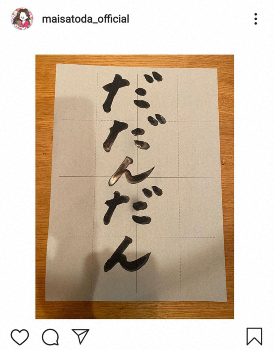 maisatoda_official
だだんだん